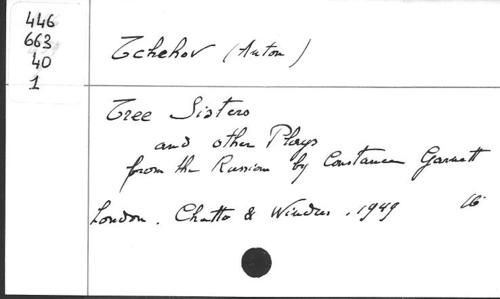 446
663
40
1
Tchehov (Anton)
Tree Sisters
and other Plays
from the Russian by Constance Garnett
London. Chatto & Windus. 1949 16